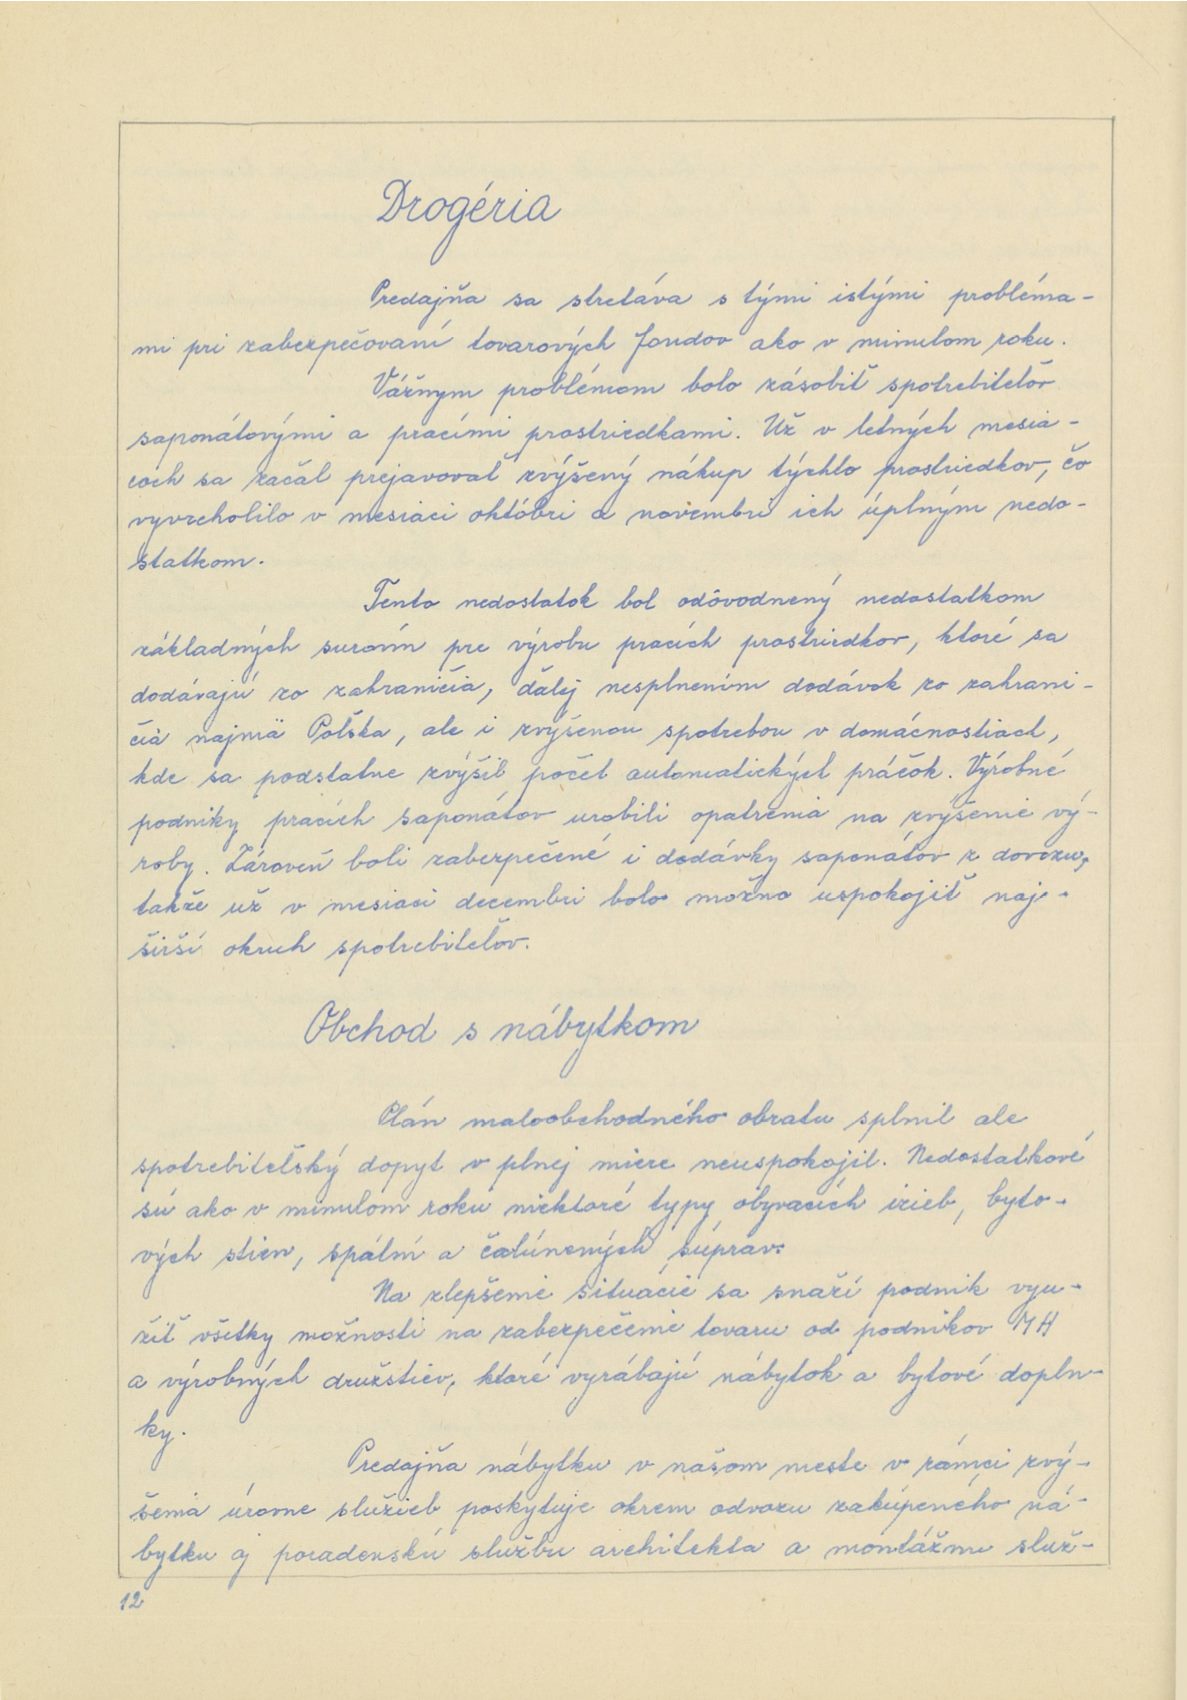 Drogéria
Predajňa sa stretáva s tými istými probléma-
mi pri zabezpečovaní tovarových fondov ako v minulom roku.
Vážnym problémom bolo zásobiť spotrebiteľov
saponátovými a pracími prostriedkami. Už v letných mesia-
coch sa začal prejavovať zvýšený nákup týchto prostriedkov, čo
vyvrcholilo v mesiaci októbri a novembri ich úplným nedo-
statkom.
Tento nedostatok bol odôvodnený nedostatkom
základných surovín pre výrobu pracích prostriedkov, ktoré sa
dodávajú zo zahraničia, ďalej nesplnením dodávok zo zahrani-
čia najmä Poľska, ale i zvýšenou spotrebou v domácnostiach,
kde sa podstatne zvýšil počet automatických práčok. Výrobné
podniky pracích saponátov urobili opatrenia na zvýšenie vý-
roby. Zároveň boli zabezpečené i dodávky saponátov z dovozu,
takže už v mesiaci decembri bolo možno uspokojiť naj-
širší okruh spotrebiteľov.
Obchod s nábytkom
Plán maloobchodného obratu splnil ale
spotrebiteľský dopyt v plnej miere neuspokojil. Nedostatkové
sú ako v minulom roku niektoré typy obývacích izieb, byto-
vých stien, spální a čalúnených súprav.
Na zlepšenie situácie sa snaží podnik vyu-
žiť všetky možnosti na zabezpečenie tovaru od podnikov MH
a výrobných družstiev, ktoré vyrábajú nábytok a bytové dopln-
ky.
Predajňa nábytku v našom meste v rámci zvý-
šenia úrovne služieb poskytuje okrem odvozu zakúpeného ná-
bytku aj poradenskú službu architekta a montážnu služ-
12